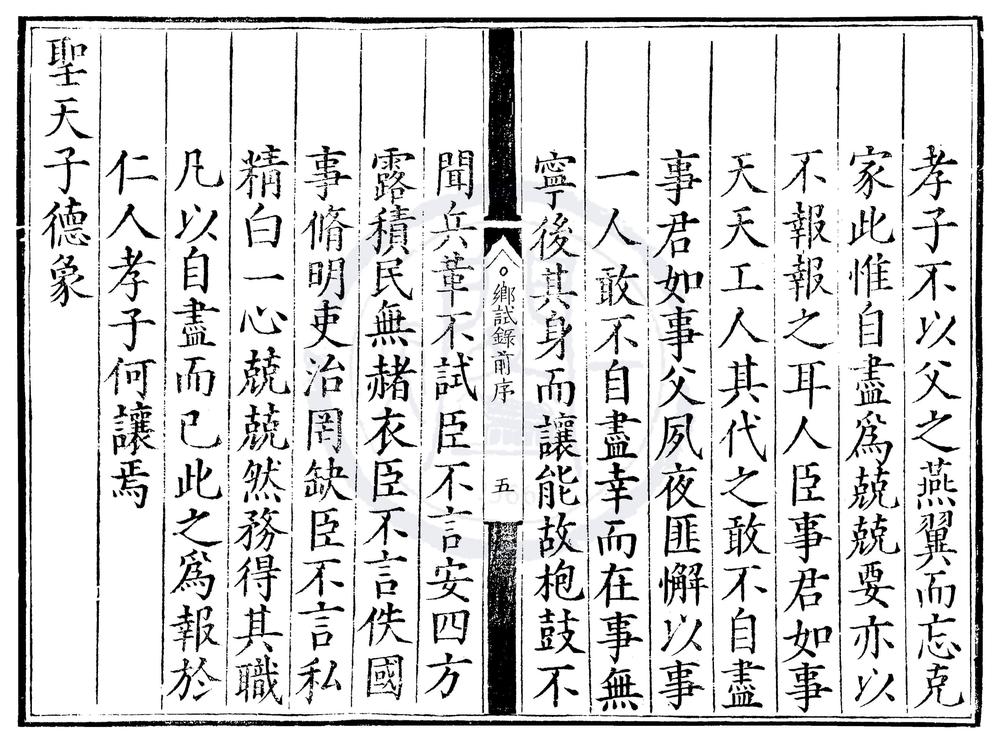 孝子不以父之燕翼而忘克
家此惟自盡爲兢兢要亦以
不報報之耳人臣事君如事
天天工人其代之敢不自盡
事君如事父夙夜匪懈以事
一人敢不自盡幸而在事無
寧後其身而讓能故枹鼓不
鄉試錄前序
五
聞兵革不試臣不言安四方
露積民無赭衣臣不言佚國
事脩明吏治罔缺臣不言私
精白一心兢兢然務得其職
凡以自盡而已此之爲報於
仁人孝子何讓焉
聖天子德象